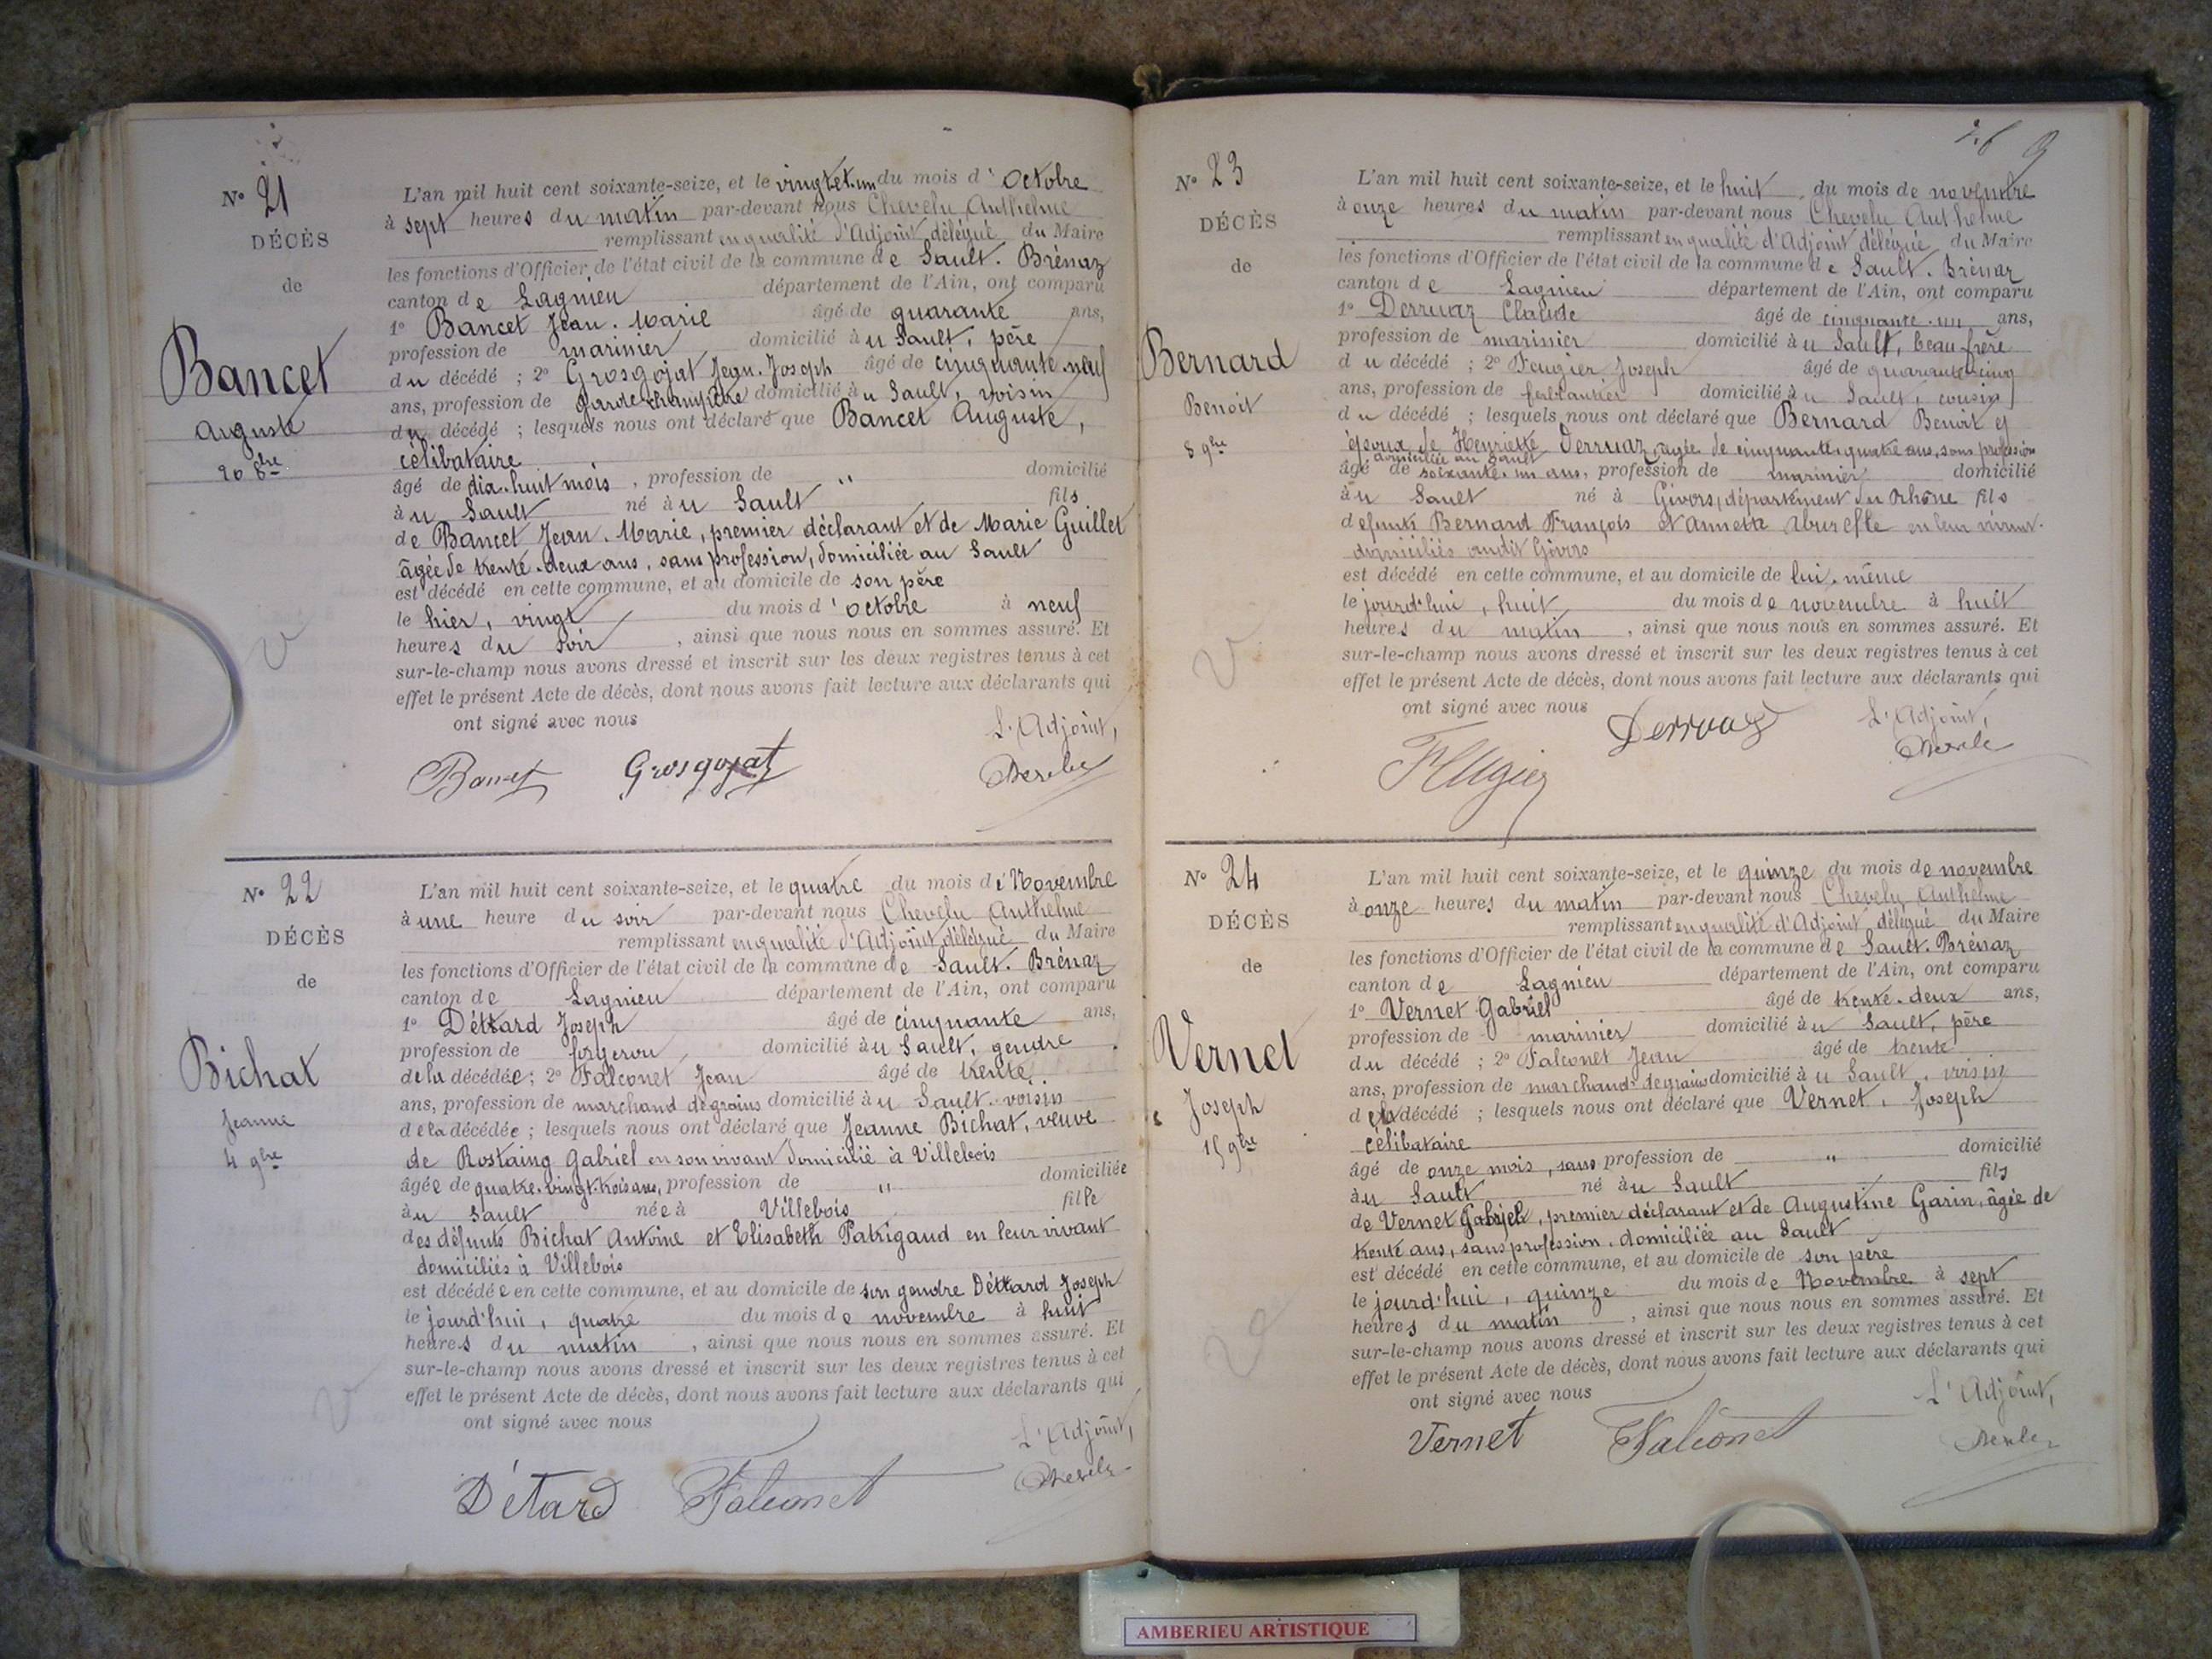 N° 21
DÉCÈS
de
Bancet
Auguste
20 8bre
L'an mil huit cent soixante-seize, et le vingt et un du mois d'Octobre
à sept heures du matin par-devant nous Chevelu Anthelme
remplissant en qualité d'Adjoint délégué du Maire
les fonctions d'Officier de l'état civil de la commune de Sault-Brénaz
canton de Lagnieu département de l'Ain, ont comparu
1° Bancet Jean-Marie âgé de quarante ans,
profession de marinier domicilié au Sault, père
du décédé ; 2° Grosgojat Jean-Joseph âgé de cinquante-neuf
ans, profession de garde champêtre domicilié au Sault, voisin
du décédé ; lesquels nous ont déclaré que Bancet Auguste,
célibataire
âgé de dix-huit mois, profession de " domicilié
au Sault né au Sault fils
de Bancet Jean-Marie, premier déclarant et de Marie Guillet
âgée de trente-deux ans, sans profession, domiciliée au Sault
est décédé en cette commune, et au domicile de son père
le hier, vingt du mois d'octobre à neuf
heures du soir, ainsi que nous nous en sommes assuré. Et
sur-le-champ nous avons dressé et inscrit sur les deux registres tenus à cet
effet le présent Acte de décès, dont nous avons fait lecture aux déclarants qui
ont signé avec nous
L'Adjoint,
Bancet Grosgojat
N° 22
DÉCÈS
de
Bichat
Jeanne
4 9bre
L'an mil huit cent soixante-seize, et le quatre du mois de Novembre
à une heure du soir par-devant nous Chevelu Anthelme
remplissant en qualité d'Adjoint délégué du Maire
les fonctions d'Officier de l'état civil de la commune de Sault-Brénaz
canton de Lagnieu département de l'Ain, ont comparu
1° Déttard Joseph âgé de cinquante ans,
profession de forgeron domicilié au Sault, gendre
de la décédée ; 2° Falconet Jean âgé de trente
ans, profession de marchand de grains domicilié au Sault, voisin
de la décédée ; lesquels nous ont déclaré que Jeanne Bichat, veuve
de Rostaing Gabriel en son vivant domicilié à Villebois
âgée de quatre-vingt-trois ans, profession de " domiciliée
au Sault née à Villebois fille
des défunts Bichat Antoine et Elisabeth Patrigaud en leur vivant
domiciliés à Villebois
est décédée en cette commune, et au domicile de son gendre Déttard Joseph
le jourd'hui, quatre du mois de novembre à huit
heures du matin, ainsi que nous nous en sommes assuré. Et
sur-le-champ nous avons dressé et inscrit sur les deux registres tenus à cet
effet le présent Acte de décès, dont nous avons fait lecture aux déclarants qui
ont signé avec nous
L'Adjoint,
Détard Falconet
9
N° 23
DÉCÈS
de
Bernard
Benoit
8 9bre
L'an mil huit cent soixante-seize, et le huit du mois de novembre
à onze heures du matin par-devant nous Chevelu Anthelme
remplissant en qualité d'Adjoint délégué du Maire
les fonctions d'Officier de l'état civil de la commune de Sault-Brénaz
canton de Lagnieu département de l'Ain, ont comparu
1° Derruaz Claude âgé de cinquante-un ans,
profession de marinier domicilié au Sault, beau frère
du décédé ; 2° Feugier Joseph âgé de quarante-cinq
ans, profession de ferblantier domicilié au Sault, cousin
du décédé ; lesquels nous ont déclaré que Bernard Benoit
époux de Henriette Derruaz, âgée de cinquante-quatre ans, sans profession
domiciliée au Sault
âgé de soixante-un ans, profession de marinier domicilié
au Sault né à Givors, département du Rhône fils
defunts Bernard François et Annette en leur vivant
domiciliés audit Givors
est décédé en cette commune, et au domicile de lui-même
le jourd'hui, huit du mois de novembre à huit
heures du matin, ainsi que nous nous en sommes assuré. Et
sur-le-champ nous avons dressé et inscrit sur les deux registres tenus à cet
effet le présent Acte de décès, dont nous avons fait lecture aux déclarants qui
ont signé avec nous
Derruaz L'Adjoint,
N° 24
DÉCÈS
de
Vernet
Joseph
15 9bre
L'an mil huit cent soixante-seize, et le quinze du mois de novembre
à onze heures du matin par-devant nous Chevelu Anthelme
remplissant en qualité d'Adjoint délégué du Maire
les fonctions d'Officier de l'état civil de la commune de Sault-Brénaz
canton de Lagnieu département de l'Ain, ont comparu
1° Vernet Gabriel âgé de trente-deux ans,
profession de marinier domicilié au Sault, père
du décédé ; 2° Falconet Jean âgé de trente
ans, profession de marchand de grains domicilié au Sault, voisin
décédé ; lesquels nous ont déclaré que Vernet, Joseph
célibataire
âgé de onze mois, sans profession de " domicilié
au Sault né au Sault fils
de Vernet Gabriel, premier déclarant et de Augustine Garin, âgée de
trente ans, sans profession, domiciliée au Sault
est décédé en cette commune, et au domicile de son père
le jourd'hui, quinze du mois de Novembre à sept
heures du matin, ainsi que nous nous en sommes assuré. Et
sur-le-champ nous avons dressé et inscrit sur les deux registres tenus à cet
effet le présent Acte de décès, dont nous avons fait lecture aux déclarants qui
ont signé avec nous
L'Adjoint,
Vernet Falconet
AMBERIEU ARTISTIQUE